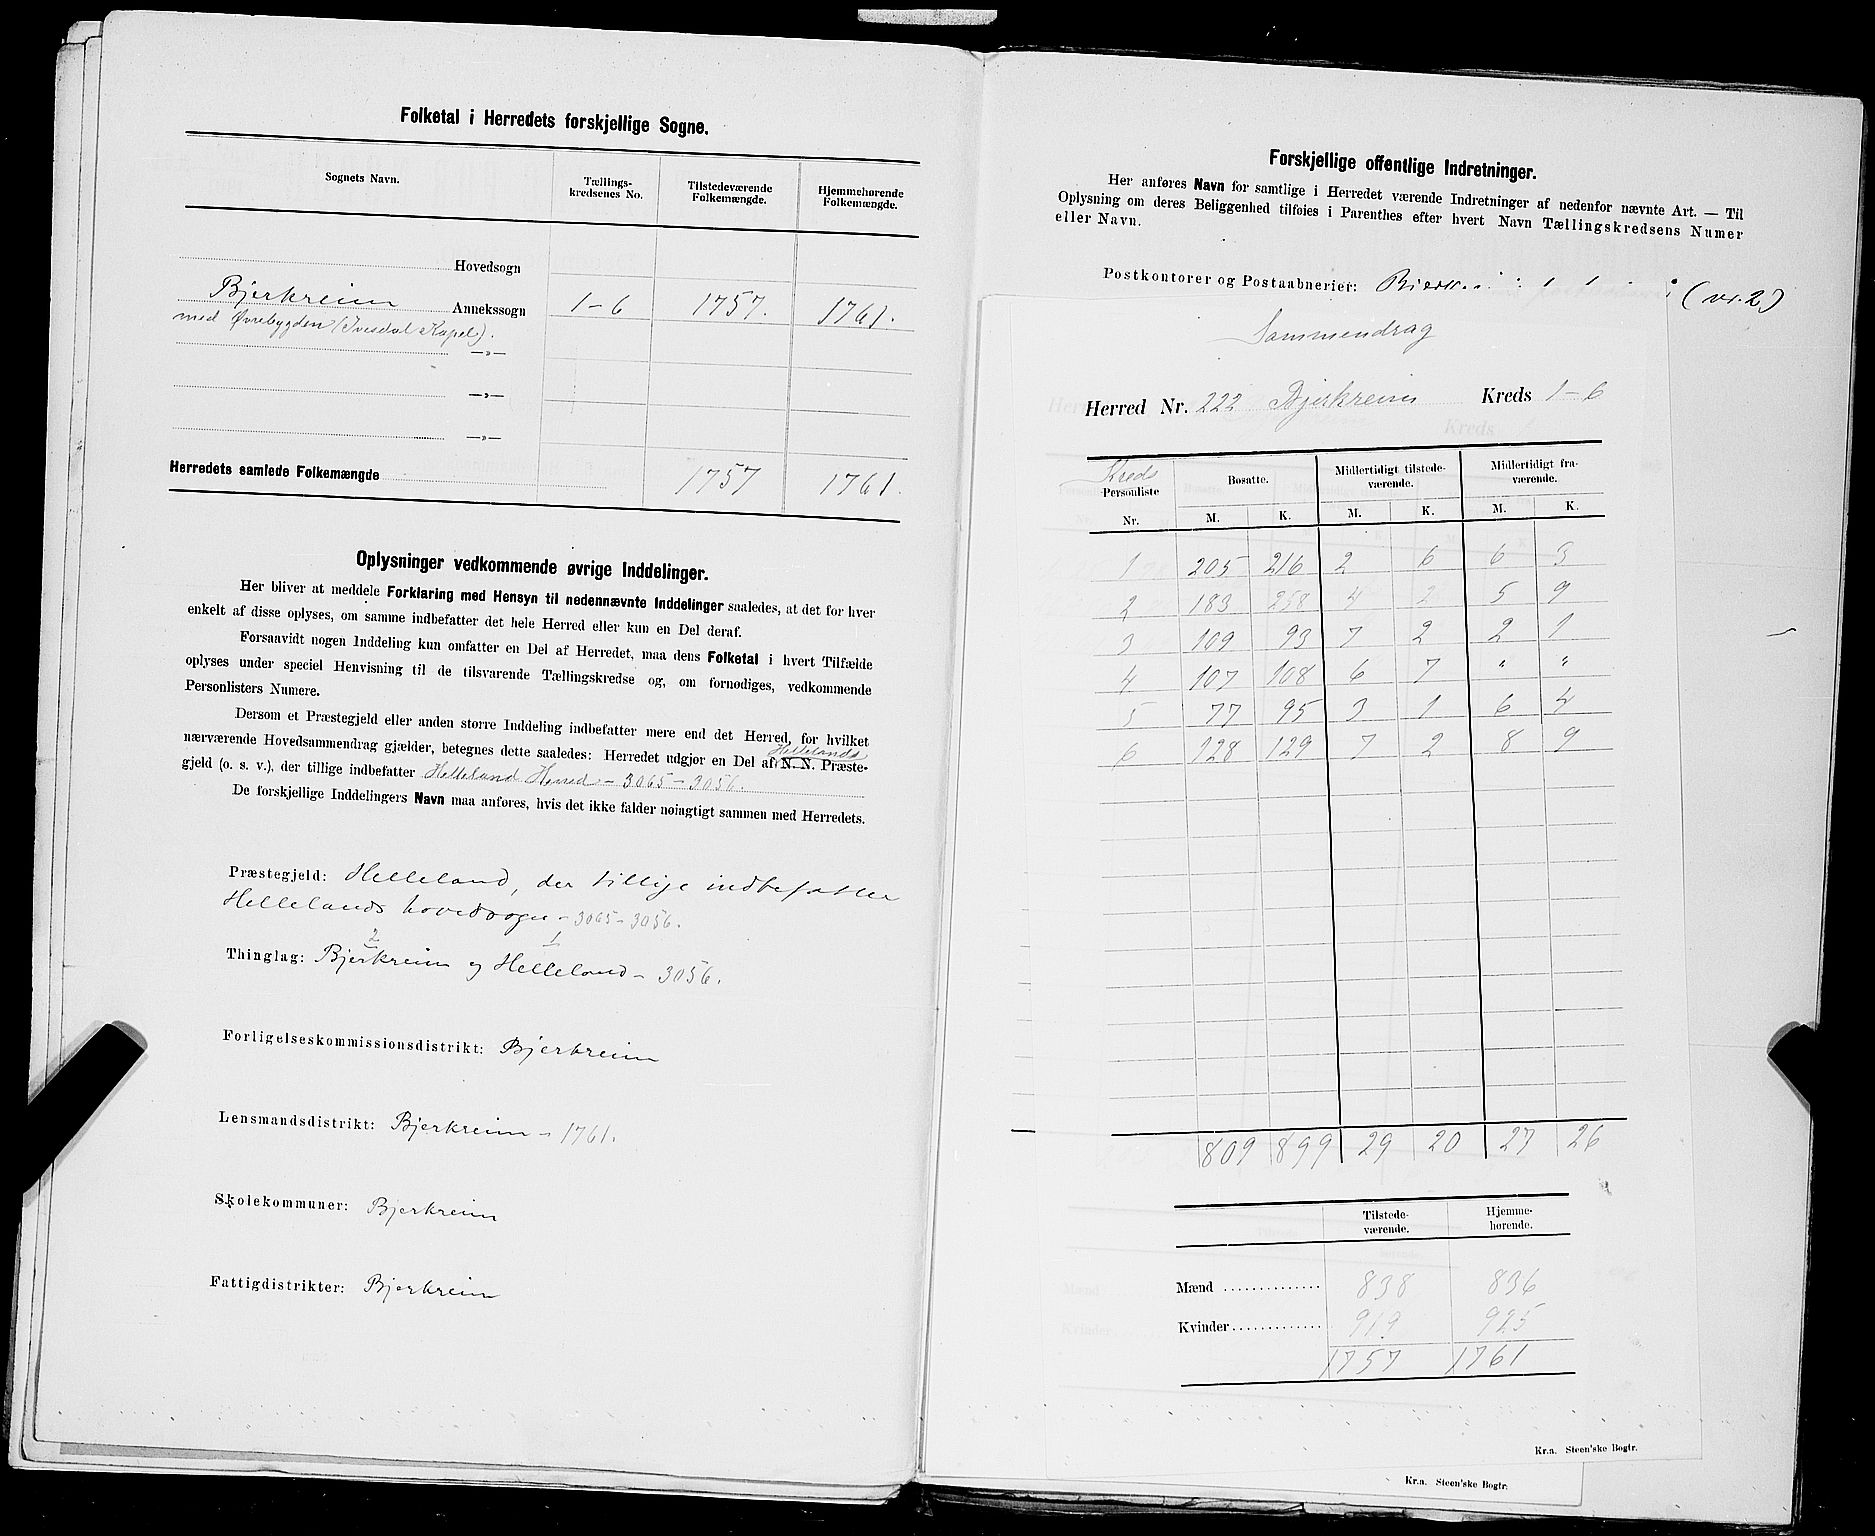 Folketal i Herredets forskjellige Sogne.
Sognets Navn.
Tællings-
kredsenes No.
Tilstedeværende
Folkemængde.
Hjemmehørende
Folkemængde.
Hovedsogn
Bjerkreim Annekssogn 1-6 1757. 1761.
med Øvrebygden (Ivesdal Kapel).
—„—
—„—
—„—
Herredets samlede Folkemængde 1757 1761.
Oplysninger vedkommende øvrige Inddelinger.
Her bliver at meddele Forklaring med Hensyn til nedennævnte Inddelinger saaledes, at det for hver
enkelt af disse oplyses, om samme indbefatter det hele Herred eller kun en Del deraf.
Forsaavidt nogen Inddeling kun omfatter en Del af Herredet, maa dens Folketal i hvert Tilfælde
oplyses under speciel Henvisning til de tilsvarende Tællingskredse og, om fornødiges, vedkommende
Personlisters Numere.
Dersom et Præstegjeld eller anden større Inddeling indbefatter mere end det Herred, for hvilket
nærværende Hovedsammendrag gjælder, betegnes dette saaledes: Herredet udgjør en Del af N. N. Præste-
Hellelands
gjeld (o. s. v.), der tillige indbefatter Helleland Herred - 3065 - 3056.
De forskjellige Inddelingers Navn maa anføres, hvis det ikke falder nøiagtigt sammen med Herredets.
Præstegjeld: Helleland, der tillige indbefatter
Hellelands hovedsogn - 3065 - 3056.
2 1
Thinglag: Bjerkreim og Helleland - 3056.
Forligelseskommissionsdistrikt: Bjerkreim
Lensmandsdistrikt: Bjerkreim - 1761.
Skolekommuner: Bjerkreim
Fattigdistrikter: Bjerkreim
Forskjellige offentlige Indretninger.
Her anføres Navn for samtlige i Herredet værende Indretninger af nedenfor nævnte Art. — Til
Oplysning om deres Beliggenhed tilføies i Parenthes efter hvert Navn Tællingskredsens Numer
eller Navn.
Postkontorer og Postaabnerier: (nr. 2)
Sammendrag
Herred Nr. 222 Bjerkreim Kreds 1-6
Kreds
Personliste
Nr.
Bosatte.
Midlertidigt tilstede-
værende.
Midlertidigt fra-
værende.
M. K. M. K. M. K.
1 205 216 2 6 6 3
2 183 258 4 2 5 9
3 109 93 7 2 2 1
4 107 108 6 7 " "
5 77 95 3 1 6 4
6 128 129 7 2 8 9
809 899 29 20 27 26
Tilstede-
værende.
Hjemme-
hørende.
Mænd 838 836
Kvinder 919 925
1757 1761
Kr.a. Steen'ske Bogtr.
Kr.a. Steen'ske Bogtr.